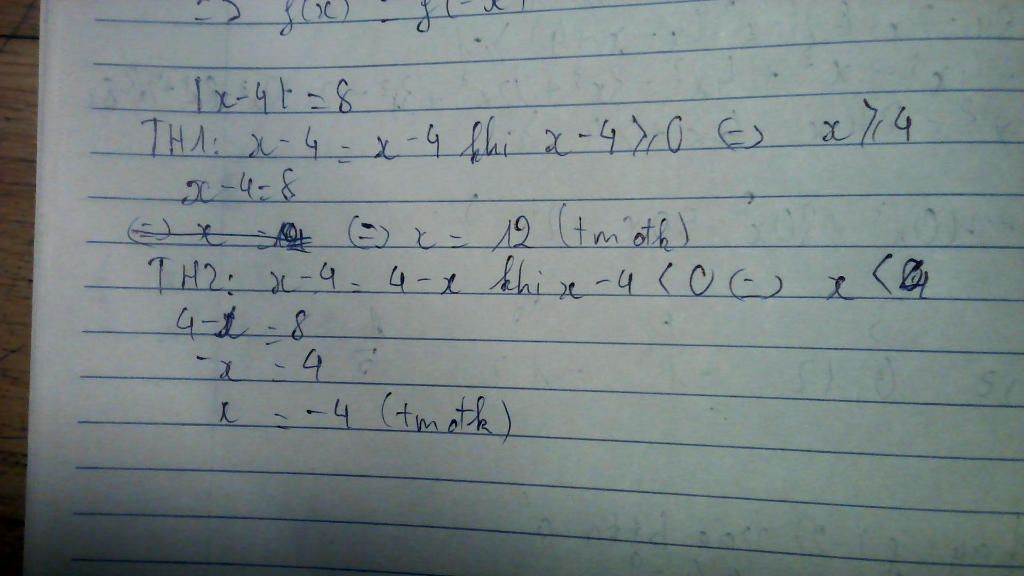 => f(x) = f(-x)
|x-4| = 8
TH1: x-4 = x-4 khi x-4 ≥ 0 (=) x ≥ 4
x-4 = 8
(=) x = (=) x = 12 (tmđk)
TH2: x-4 = 4-x khi x-4 < 0 (=) x < 4
4-x = 8
-x = 4
x = -4 (tmđk)